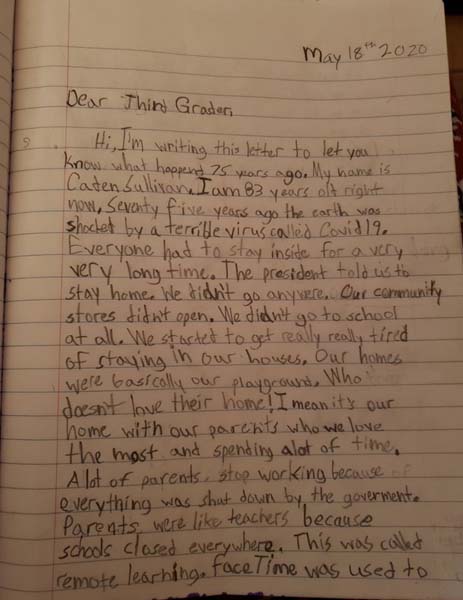 May 18th 2020
Dear Third Grader,
Hi, I'm writing this letter to let you
know what happend 75 years ago. My name is
Caden Sullivan. I am 83 years old right
now. Seventy five years ago the earth was
shocked by a terrible virus called Covid19.
Everyone had to stay inside for a very
very long time. The president told us to
stay home. We didn't go anywere. Our community
stores didn't open. We didn't go to school
at all. We started to get really really tired
of staying in our houses. Our homes
were basically our playground. Who
doesn't love their home! I mean it's our
home with our parents who we love
the most and spending alot of time.
A lot of parents stop working because
everything was shut down by the goverment.
Parents were like teachers because
schools closed everywhere. This was called
remote learning. FaceTime was used to